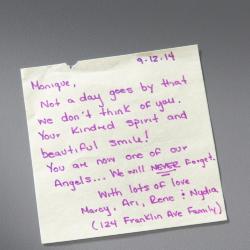 9-12-14
Monique,
Not a day goes by that
we don't think of you.
Your kindred spirit and
beautiful smile!
You are now one of our
Angels... We will NEVER forget.
With lots of love
Marcy, Ari, Rene & Nydia
(124 Franklin Ave Family)